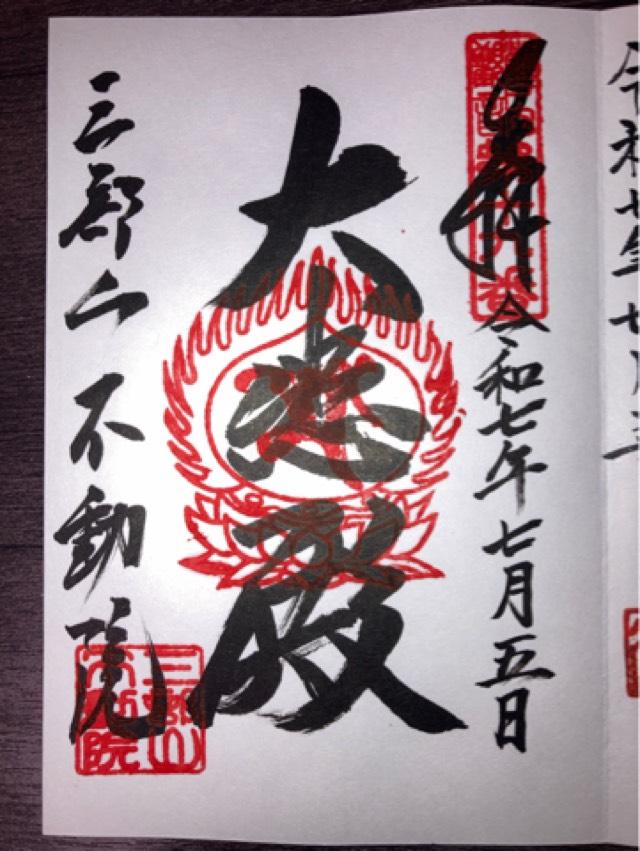 奉拝
令和七年七月五日
大悲殿
三部山 不動院
三部山
不動院
令和七年七月